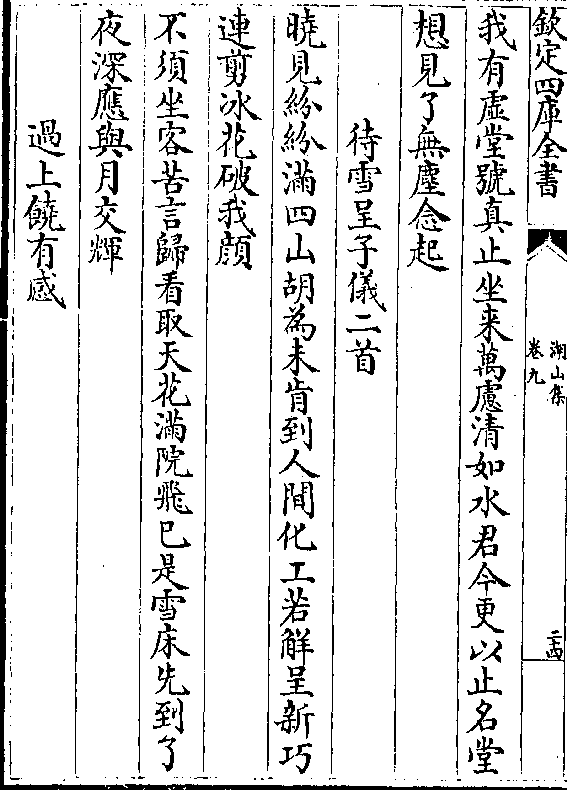 欽定四庫全書
湖山集
卷九
二十四
我有虛堂號真止坐来萬慮清如水君今更以止名堂
想見了無塵念起
待雪呈子儀二首
曉見紛紛滿四山胡為未肯到人間化工若解呈新巧
連剪冰花破我顔
不須坐客苦言歸看取天花滿院飛已是雪床先到了
夜深應與月交輝
過上饒有感